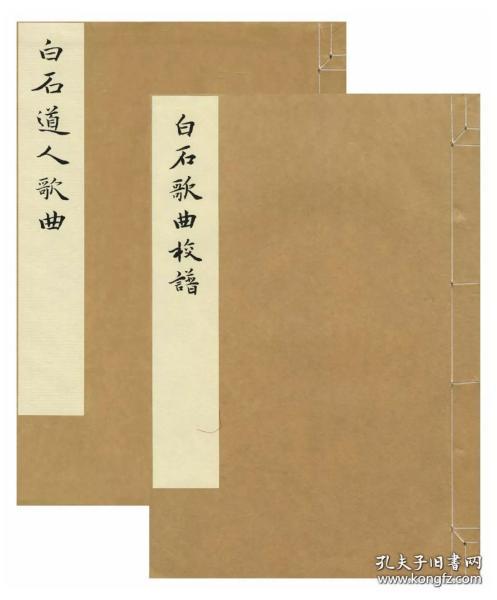 白石道人歌曲
白石歌曲校譜
孔夫子旧书网
www.kongfz.com